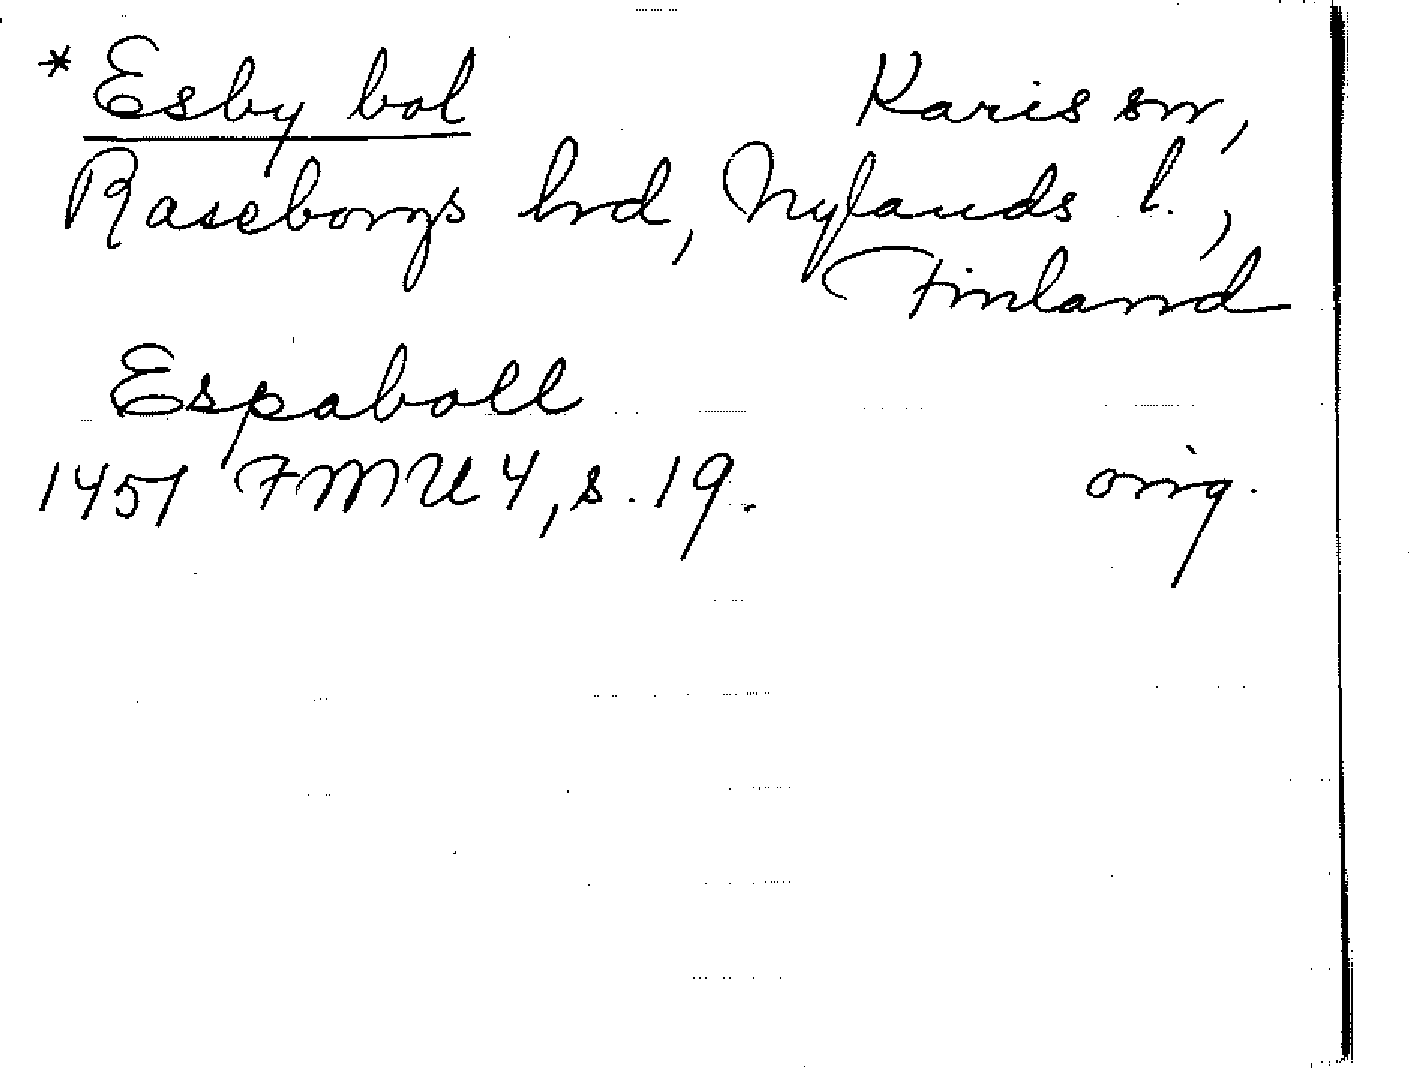 * Esby bol Karis sn,
Raseborgs hrd, Nylands l.,
Finland
Espaboll
1451 FMU 4, s. 19. orig.